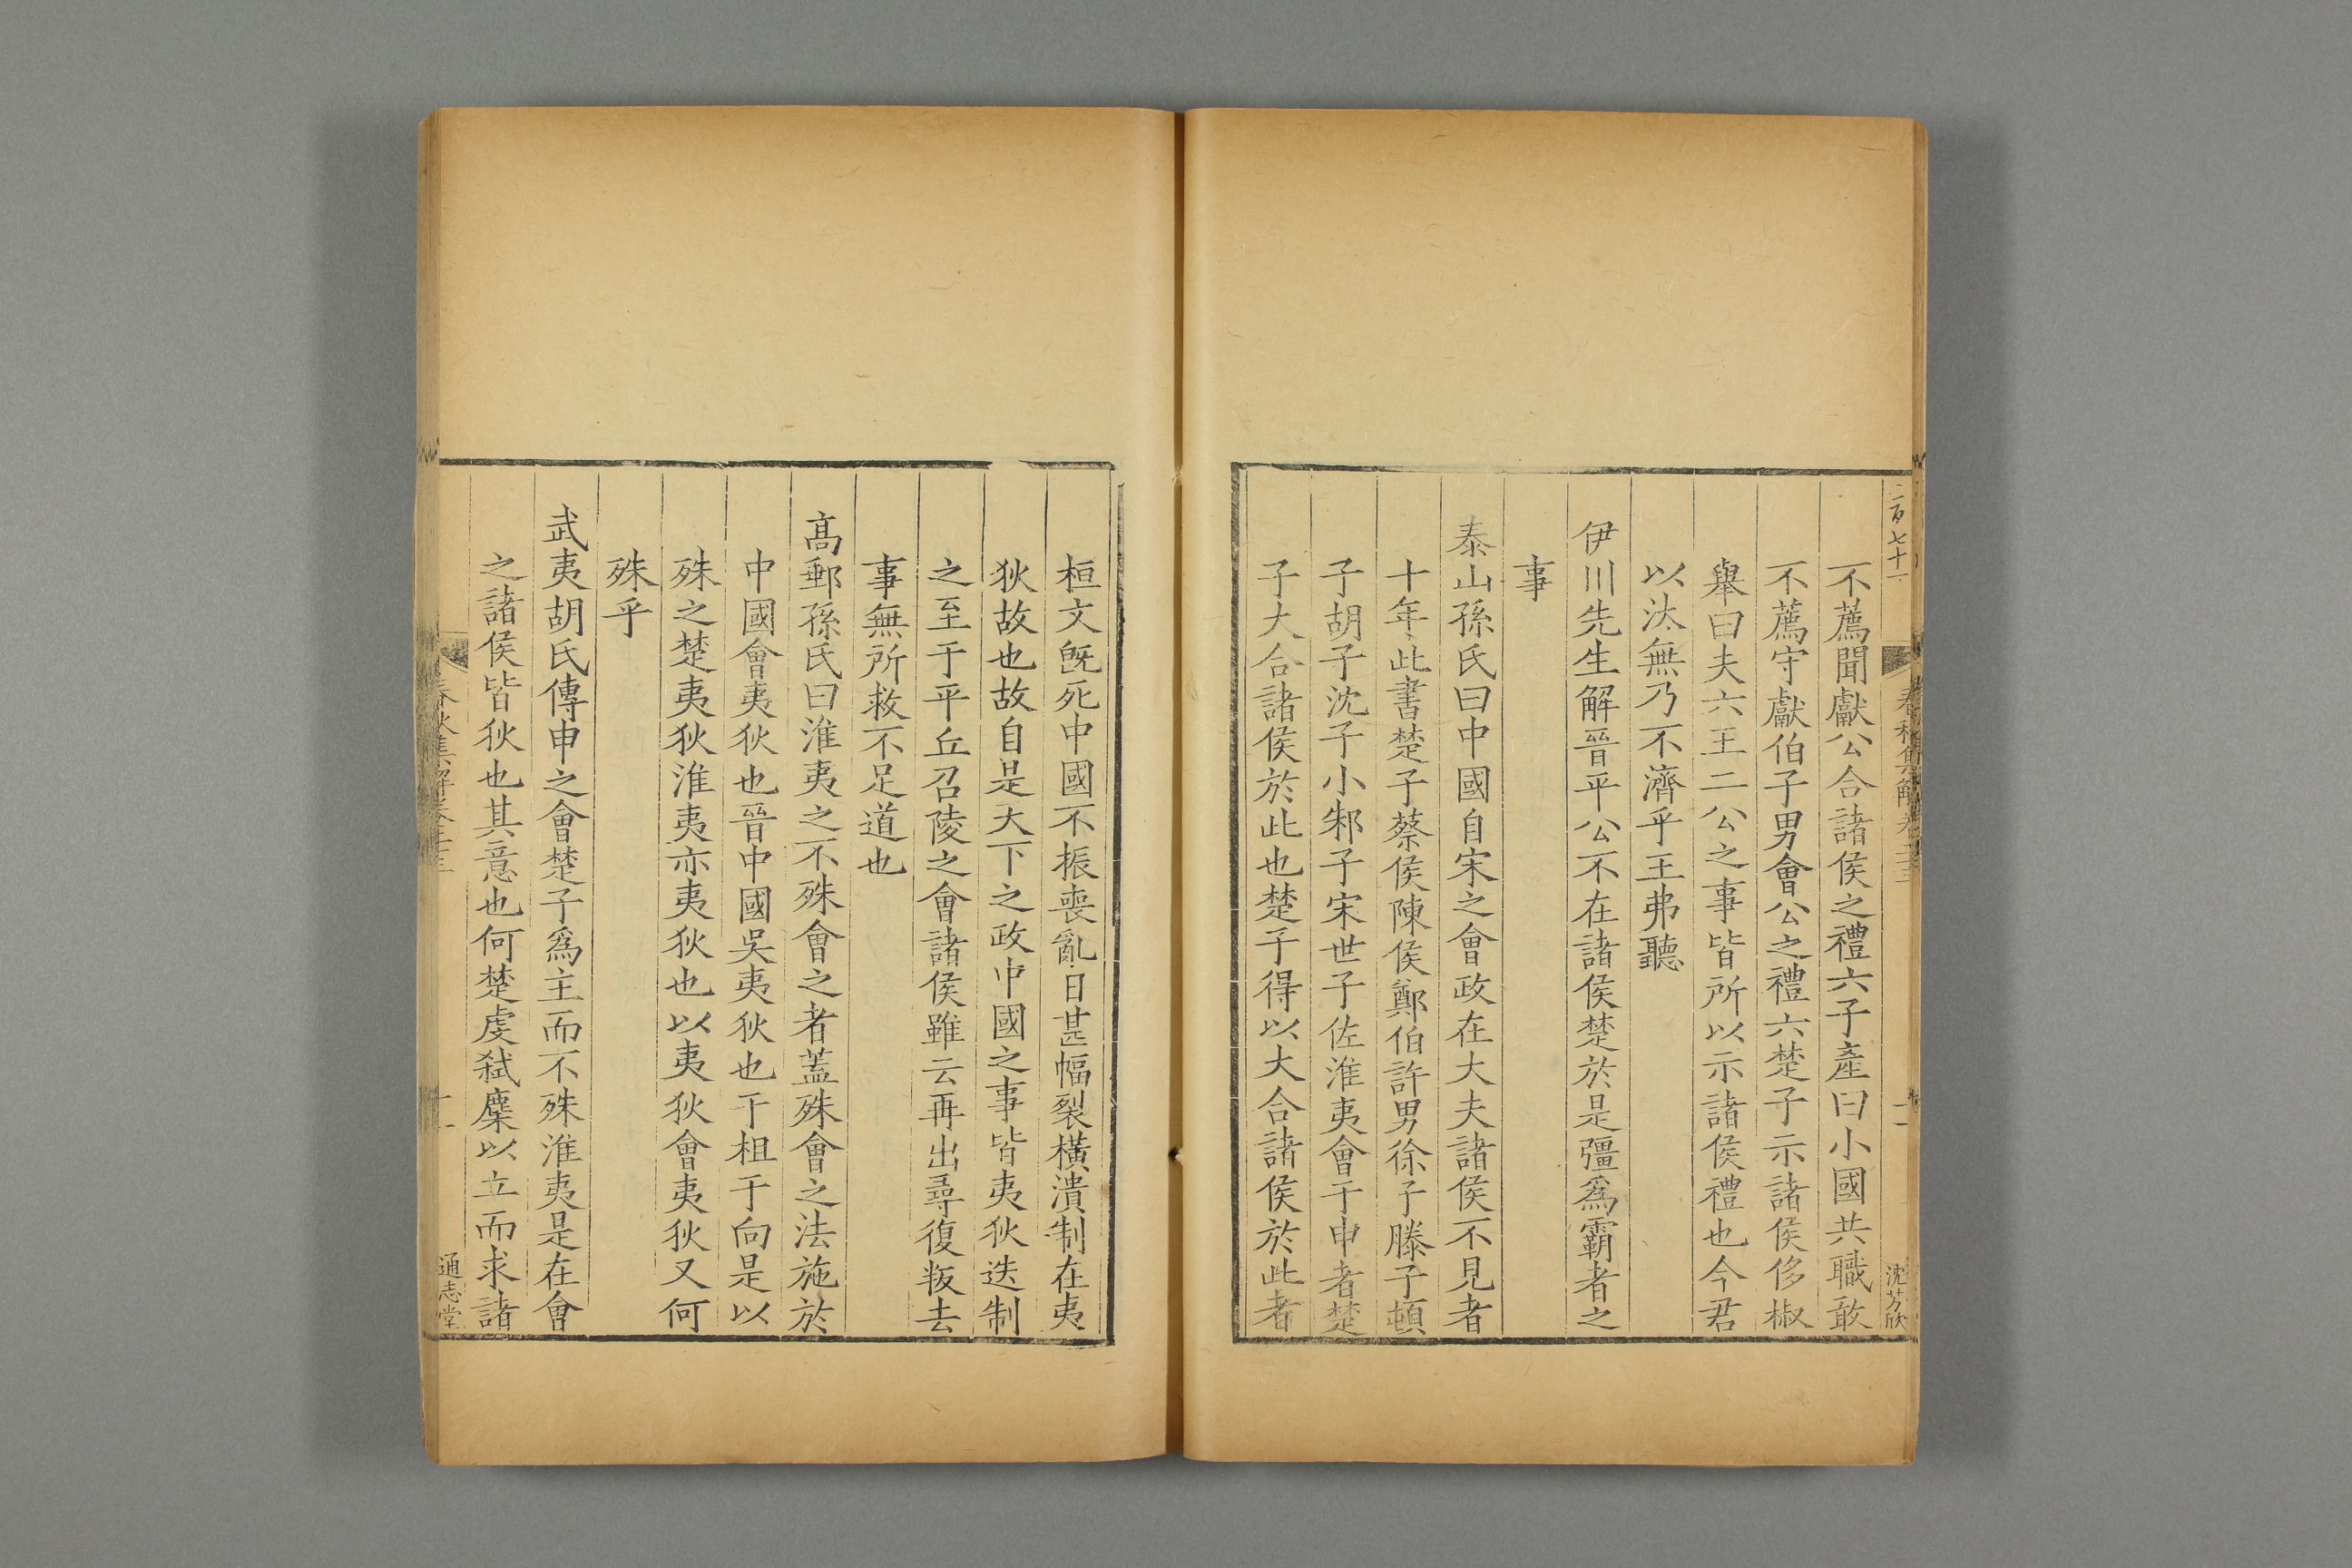 二百七十一
春秋集解卷二十三
十一
沈芳欣
不薦聞獻公合諸侯之禮六子產曰小國共職敢
不薦守獻伯子男會公之禮六楚子示諸侯侈椒
舉曰夫六王二公之事皆所以示諸侯禮也今君
以汰無乃不濟乎王弗聽
伊川先生解晉平公不在諸侯楚於是彊爲霸者之
事
泰山孫氏曰中國自宋之會政在大夫諸侯不見者
十年此書楚子蔡侯陳侯鄭伯許男徐子滕子頓
子胡子沈子小邾子宋世子佐淮夷會于申者楚
子大合諸侯於此也楚子得以大合諸侯於此者
桓文旣死中國不振喪亂日甚幅裂橫潰制在夷
狄故也故自是天下之政中國之事皆夷狄迭制
之至于平丘召陵之會諸侯雖云再出尋復叛去
事無所救不足道也
髙郵孫氏曰淮夷之不殊會之者蓋殊會之法施於
中國會夷狄也晉中國吳夷狄也于柤于向是以
殊之楚夷狄淮夷亦夷狄也以夷狄會夷狄又何
殊乎
武夷胡氏傳申之會楚子爲主而不殊淮夷是在會
之諸侯皆狄也其意也何楚虔弑麇以立而求諸
春秋集解卷二十三
十一
通志堂